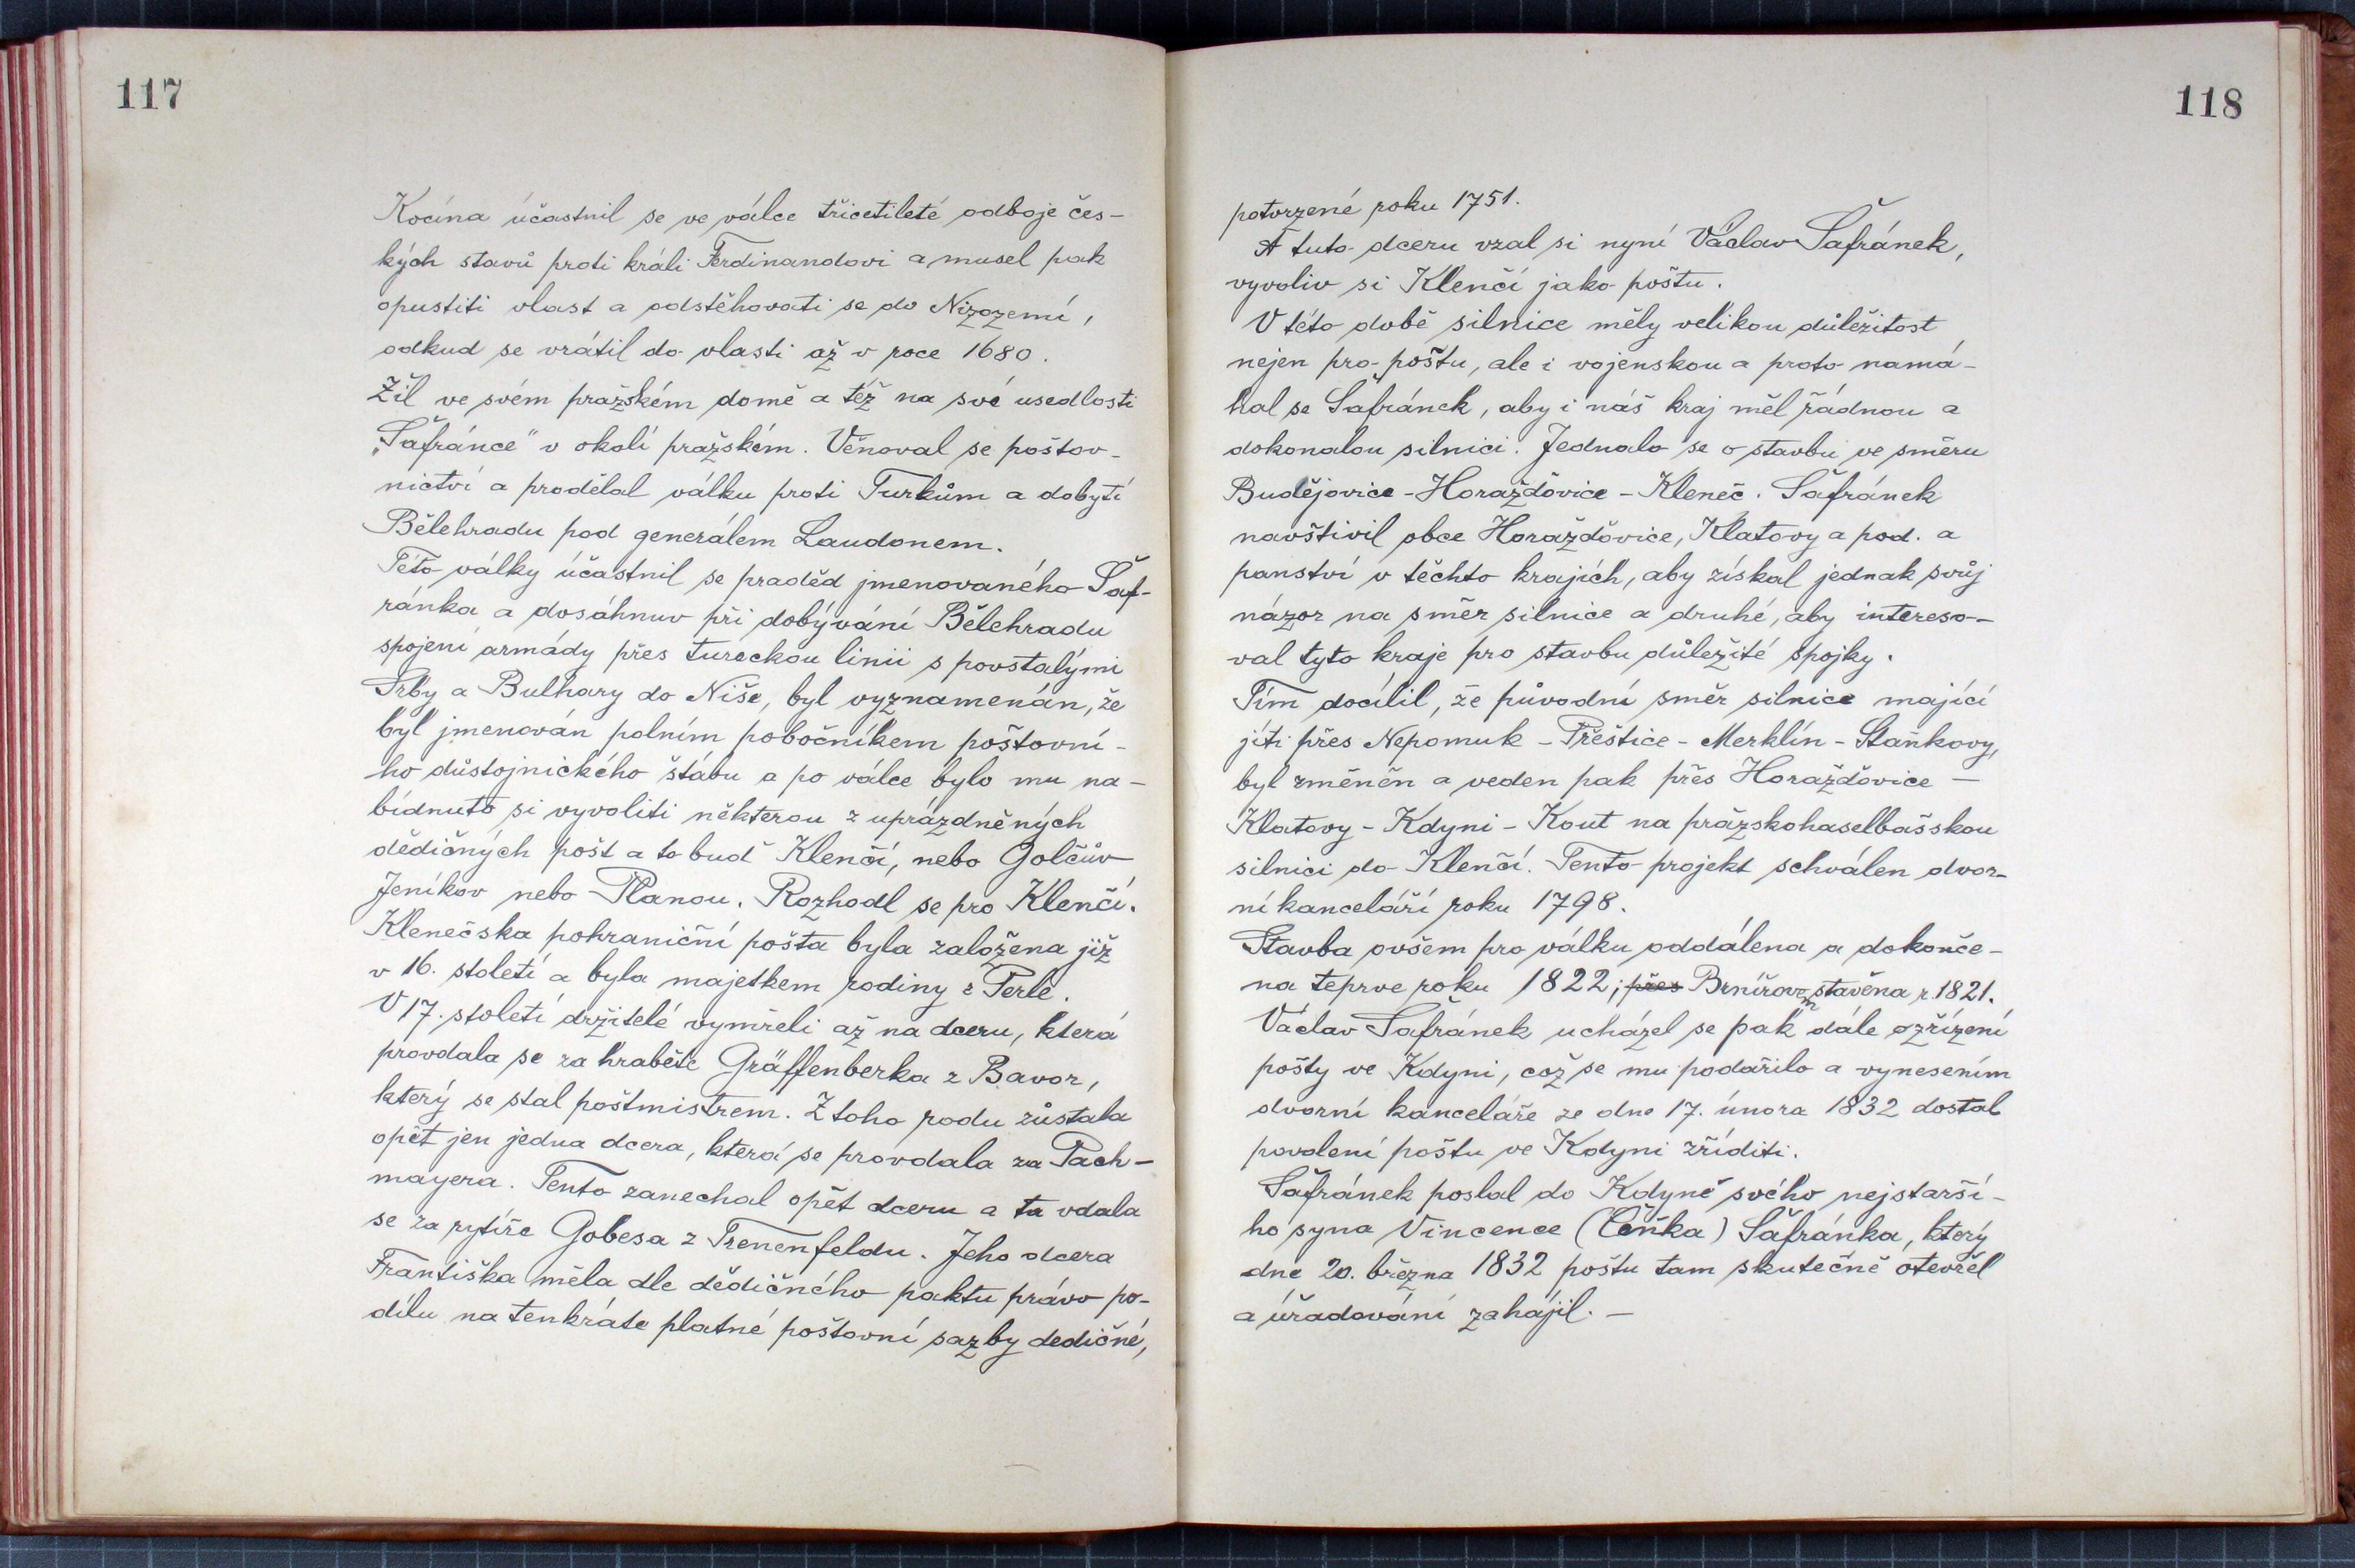 117
Kocína účastnil se ve válce třicetileté odboje čes-
kých stavů proti králi Ferdinandovi a musel pak
opustiti vlast a odstěhovati se do Nizozemí,
odkud se vrátil do vlasti až v roce 1680.
Žil ve svém pražském domě a též na své usedlosti
„Šafránce" v okolí pražském. Věnoval se poštov-
nictví a prodělal válku proti Turkům a dobytí
Bělehradu pod generálem Laudonem.
Této války účastnil se praděd jmenovaného Šaf-
ránka a dosáhnuv při dobývání Bělehradu
spojení armády přes tureckou linii s povstalými
Srby a Bulhary do Niše, byl vyznamenán, že
byl jmenován polním pobočníkem poštovní-
ho důstojnického štábu a po válce bylo mu na-
bídnuto si vyvoliti některou z uprázdněných
dědičných pošt a to buď Klenčí, nebo Golčův
Jeníkov nebo Planou. Rozhodl se pro Klenčí.
Klenečska pohraniční pošta byla založena již
v 16. století a byla majetkem rodiny z Perle.
V 17. století držitelé vymřeli až na dceru, která
provdala se za hraběte Gräffenberka z Bavor,
který se stal poštmistrem. Z toho rodu zůstala
opět jen jedna dcera, která se provdala za Pach-
mayera. Tento zanechal opět dceru a ta vdala
se za rytíře Gobesa z Trenenfeldu. Jeho dcera
Františka měla dle dědičného paktu právo po-
dílu na tenkráte platné poštovní sazby dedičné,
118
potvrzené roku 1751.
A tuto dceru vzal si nyní Václav Šafránek,
vyvoliv si Klenčí jako poštu.
V této době silnice měly velikou důležitost
nejen pro poštu, ale i vojenskou a proto namá-
hal se Šafránek, aby i náš kraj měl řádnou a
dokonalou silnici. Jednalo se o stavbu ve směru
Budějovice - Horažďovice - Kleneč. Šafránek
navštívil obce Horažďovice, Klatovy a pod. a
panství v těchto krajích, aby získal jednak svůj
názor na směr silnice a druhé, aby intereso-
val tyto kraje pro stavbu důležité spojky.
Tím docílil, že původní směr silnice mající
jíti přes Nepomuk - Přeštice - Merklín - Staňkovy,
byl změněn a veden pak přes Horažďovice -
Klatovy - Kdyni - Kout na pražskohaselbašskou
silnici do Klenčí. Tento projekt schválen dvor-
ní kanceláří roku 1798.
Stavba ovšem pro válku oddálena a dokonče-
na teprve roku 1822; přes Brnířovem stavěna r. 1821.
Václav Šafránek ucházel se pak dále o zřízení
pošty ve Kdyni, což se mu podařilo a vynesením
dvorní kanceláře ze dne 17. února 1832 dostal
povolení poštu ve Kdyni zříditi.
Šafránek poslal do Kdyně svého nejstarší-
ho syna Vincence (Čeňka) Šafránka, který
dne 20. března 1832 poštu tam skutečně otevřel
a úřadování zahájil. -